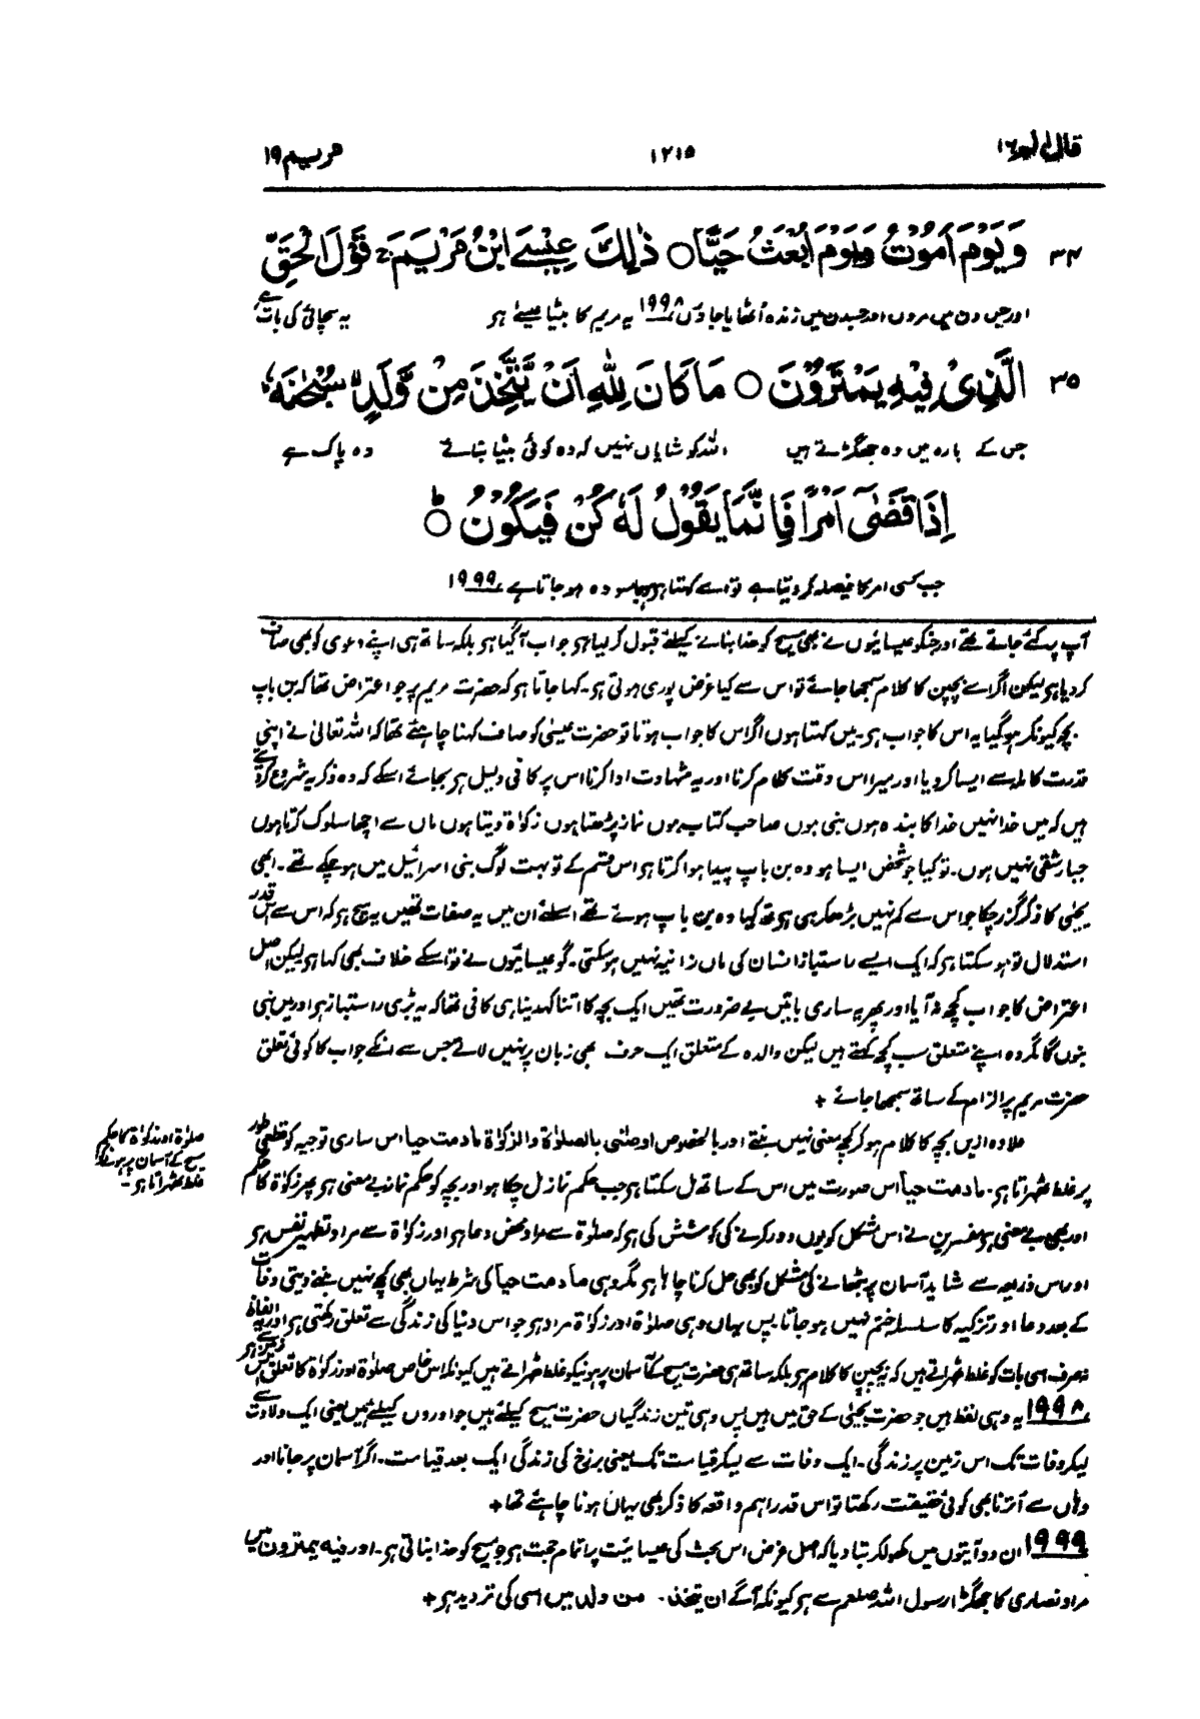 قال الم ۱۶
۱۲۱۵
مریم ۱۹
۳۴ وَيَوْمَ اَمُوْتُ وَيَوْمَ اُبْعَثُ حَيًّا○ ذٰلِكَ عِيْسَى ابْنُ مَرْيَمَ ۚ قَوْلَ الْحَقِّ
اور جس دن میں مروں اور جس دن میں زندہ اُٹھایا جاؤں ۱۹۹۸ یہ مریم کا بیٹا عیسےٰ ہو یہ سچائی کی بات ہے
۳۵ الَّذِيْ فِيْهِ يَمْتَرُوْنَ○ مَا كَانَ لِلّٰهِ اَنْ يَّتَّخِذَ مِنْ وَّلَدٍ ۙ سُبْحٰنَهٗ ؕ
جس کے بارہ میں وہ جھگڑتے ہیں اللہ کو شایاں نہیں کہ وہ کوئی بیٹا بنائے وہ پاک ہے
اِذَا قَضٰٓى اَمْرًا فَاِنَّمَا يَقُوْلُ لَهٗ كُنْ فَيَكُوْنُ ○ؕ
جب کسی امر کا فیصلہ کردیتا ہے تو اسے کہتا ہو ہوجا سو وہ ہو جاتا ہے ۱۹۹۹
آپ پر کئے جاتے تھے اور جنکو عیسائیوں نے بھی مسیح کو خدا بنانے کیلئے قبول کرلیا ہو جواب آگیا ہو بلکہ ساتھ ہی اپنے دعوی کو بھی صاف
کردیا ہو لیکن اگر اسے بچپن کا کلام سمجھا جائے تو اس سے کیا غرض پوری ہوتی ہو۔ کہا جاتا ہو کہ حضرت مریم پر جو اعتراض تھا کہ بن باپ
بچہ کیونکر ہوگیا یہ اس کا جواب ہو۔ میں کہتا ہوں اگر اس کا جواب ہوتا تو حضرت عیسیٰ کو صاف کہنا چاہئے تھا کہ اللہ تعالیٰ نے اپنی
قدرت کاملہ سے ایسا کردیا اور میرا اس وقت کلام کرنا اور یہ شہادت ادا کرنا اس پر کافی دلیل ہو بجائے اسکے کہ وہ ذکر یہ شروع کرتے
ہیں کہ میں خدا نہیں خدا کا بندہ ہوں نبی ہوں صاحب کتاب ہوں نماز پڑھتا ہوں زکوٰۃ دیتا ہوں ماں سے اچھا سلوک کرتا ہوں
جبار شقی نہیں ہوں۔ تو کیا جو شخص ایسا ہو وہ بن باپ پیدا ہوا کرتا ہو اس قسم کے تو بہت لوگ بنی اسرائیل میں ہوچکے تھے۔ ابھی
یحیٰی کا ذکر گزر چکا جو اس سے کم نہیں بڑھکر ہی ہو تو کیا وہ بن باپ ہوئے تھے اسلئے ان میں یہ صفات تھیں یہ سچ ہو کہ اس سے اس قدر
استدلال تو ہوسکتا ہو کہ ایک ایسے راستباز انسان کی ماں زانیہ نہیں ہوسکتی۔ گو عیسائیوں نے تو اسکے خلاف بھی کہا ہو لیکن اصل
اعتراض کا جواب کچھ نہ آیا اور پھر یہ ساری باتیں بے ضرورت تھیں ایک بچہ کا اتنا کہدینا ہی کافی تھا کہ یہ بڑی راستباز ہو اور میں نبی
بنوں گا مگر وہ اپنے متعلق سب کچھ کہتے ہیں لیکن والدہ کے متعلق ایک حرف بھی زبان پر نہیں لاتے جس سے انکے جواب کا کوئی تعلق
حضرت مریم پر الزام کے ساتھ سمجھا جائے +
علاوہ ازیں بچہ کا کلام ہو کر کچھ معنی نہیں بنتے اور بالخصوص اوصٰنی بالصلوٰۃ والزکوٰۃ مادمت حیا اس ساری توجیہ کو قطعی طور
پر غلط ٹھہراتا ہو۔ مادمت حیا اس صورت میں اس کے ساتھ مل سکتا ہو جب حکم نازل ہوچکا ہو اور بچہ کو حکم نماز بے معنی ہو پھر زکوٰۃ کا حکم
اور بھی بے معنی ہو مفسرین نے اس مشکل کو یوں دور کرنے کی کوشش کی ہو کہ صلوٰۃ سے مراد محض دعا ہو اور زکوٰۃ سے مراد تطہیر نفس ہو
اور اس ذریعہ سے شاید آسمان پر بٹھانے کی مشکل کو بھی حل کرنا چاہا ہو مگر وہی مادمت حیا کی شرط یہاں بھی کچھ نہیں بننے دیتی وفات
کے بعد دعا اور تزکیہ کا سلسلہ ختم نہیں ہو جاتا۔ پس یہاں وہی صلوٰۃ اور زکوٰۃ مراد ہو جو اس دنیا کی زندگی سے تعلق رکھتی ہو اور یہ الفاظ
نہ صرف اسی بات کو غلط ٹھہراتے ہیں کہ یہ بچپن کا کلام ہو بلکہ ساتھ ہی حضرت مسیح کے آسمان پر ہونیکو غلط ٹھہراتے ہیں کیونکہ اس خاص صلوٰۃ اور زکوٰۃ کا تعلق اس
صلوٰۃ اور زکوٰۃ کا حکم
مسیح کے آسمان پر ہونے کو
غلط ٹھہراتا ہو۔
۱۹۹۸ یہ وہی لفظ ہیں جو حضرت یحیٰی کے حق میں ہیں پس وہی تین زندگیاں حضرت مسیح کیلئے ہیں جو اوروں کیلئے ہیں یعنی ایک ولادت سے
لیکر وفات تک اس زمین پر زندگی۔ ایک وفات سے لیکر قیامت تک یعنی برزخ کی زندگی ایک بعد قیامت۔ اگر آسمان پر جانا اور
وہاں سے اُترنا بھی کوئی حقیقت رکھتا تو اس قدر اہم واقعہ کا ذکر بھی یہاں ہونا چاہئے تھا +
۱۹۹۹ ان دو آیتوں میں کھولکر بتا دیا کہ اصل غرض اس بحث کی عیسائیت پر اتمام حجت ہو جو مسیح کو خدا بناتی ہو۔ اور فیہ یمترون میں
مراد نصاری کا جھگڑا رسول اللہ صلعم سے ہو کیونکہ آگے ان یتخذ من ولد میں اسی کی تردید ہو +